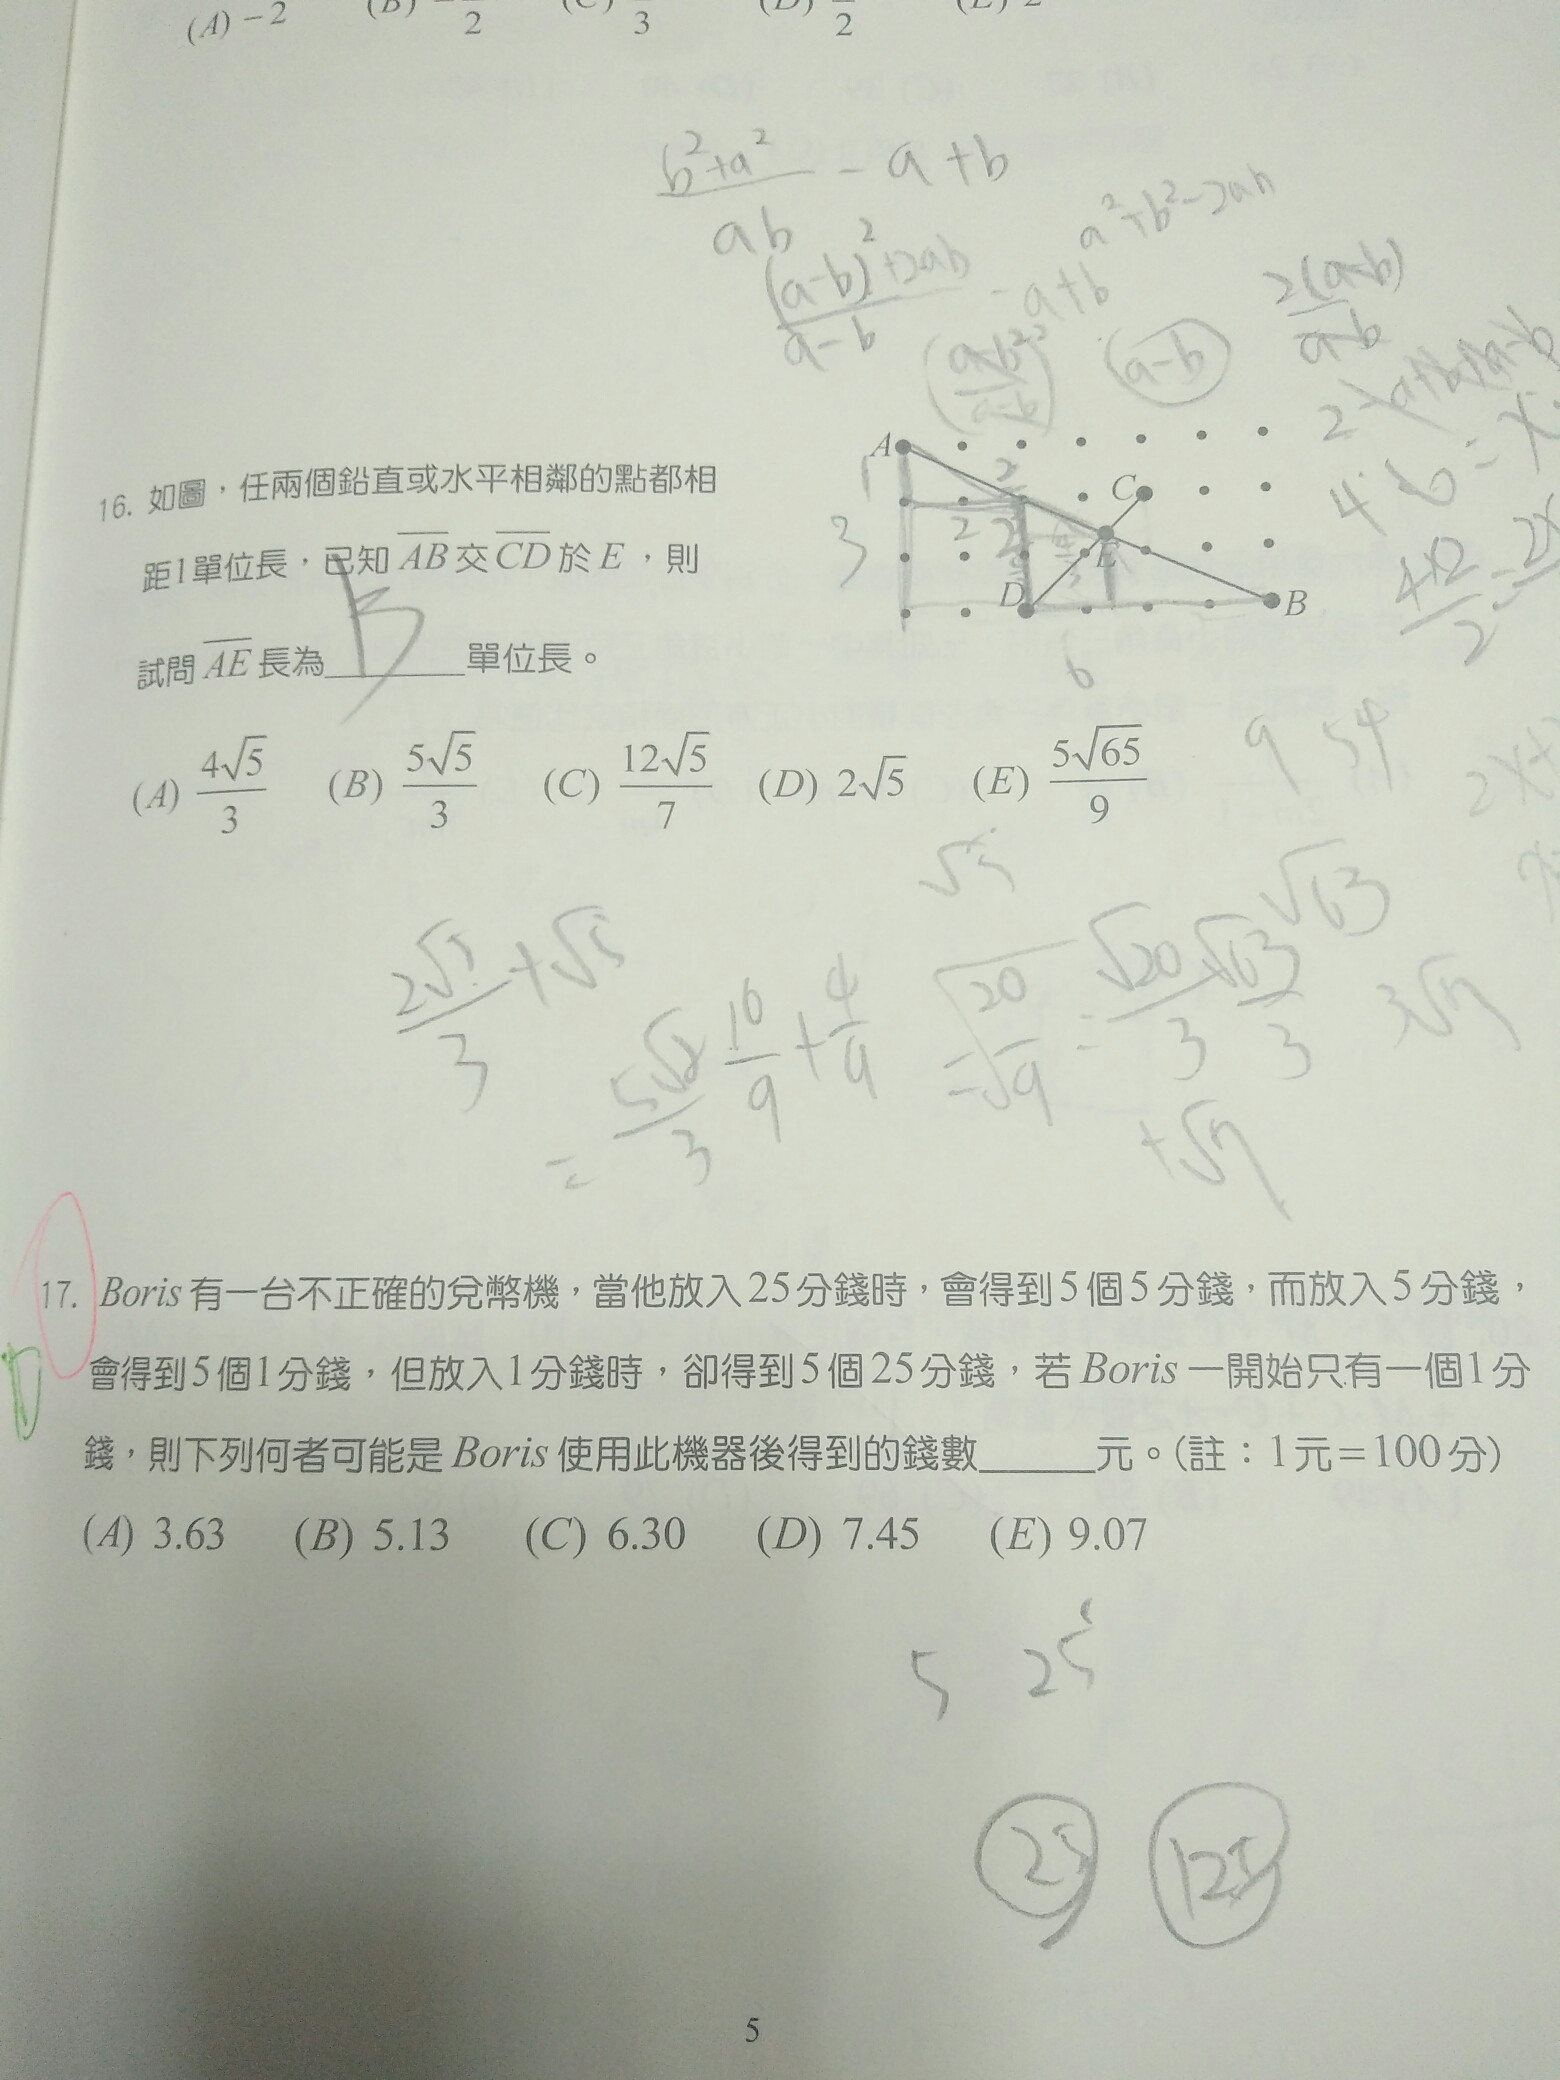 (A) -2 (B) - /2 (C) /3 (D) /2 (E) 2
b²+a²/ab - a+b
a²+b²-2ab
(a-b)²+2ab/a-b - a+b
a-b
2(a-b)/a-b
16. 如圖，任兩個鉛直或水平相鄰的點都相
距1單位長，已知 AB 交 CD 於 E，則
試問 AE 長為______單位長。
B
A
C
E
D
B
1
3
2
2
2
6
4+2/2
9 54
(A) 4√5/3 (B) 5√5/3 (C) 12√5/7 (D) 2√5 (E) 5√65/9
2√5/3 + √5
16/9 + 4/9
= √20/9 = √20/3
17. Boris 有一台不正確的兌幣機，當他放入25分錢時，會得到5個5分錢，而放入5分錢，
會得到5個1分錢，但放入1分錢時，卻得到5個25分錢，若 Boris 一開始只有一個1分
錢，則下列何者可能是 Boris 使用此機器後得到的錢數______元。(註：1元=100分)
D
(A) 3.63 (B) 5.13 (C) 6.30 (D) 7.45 (E) 9.07
5 25
25 125
5